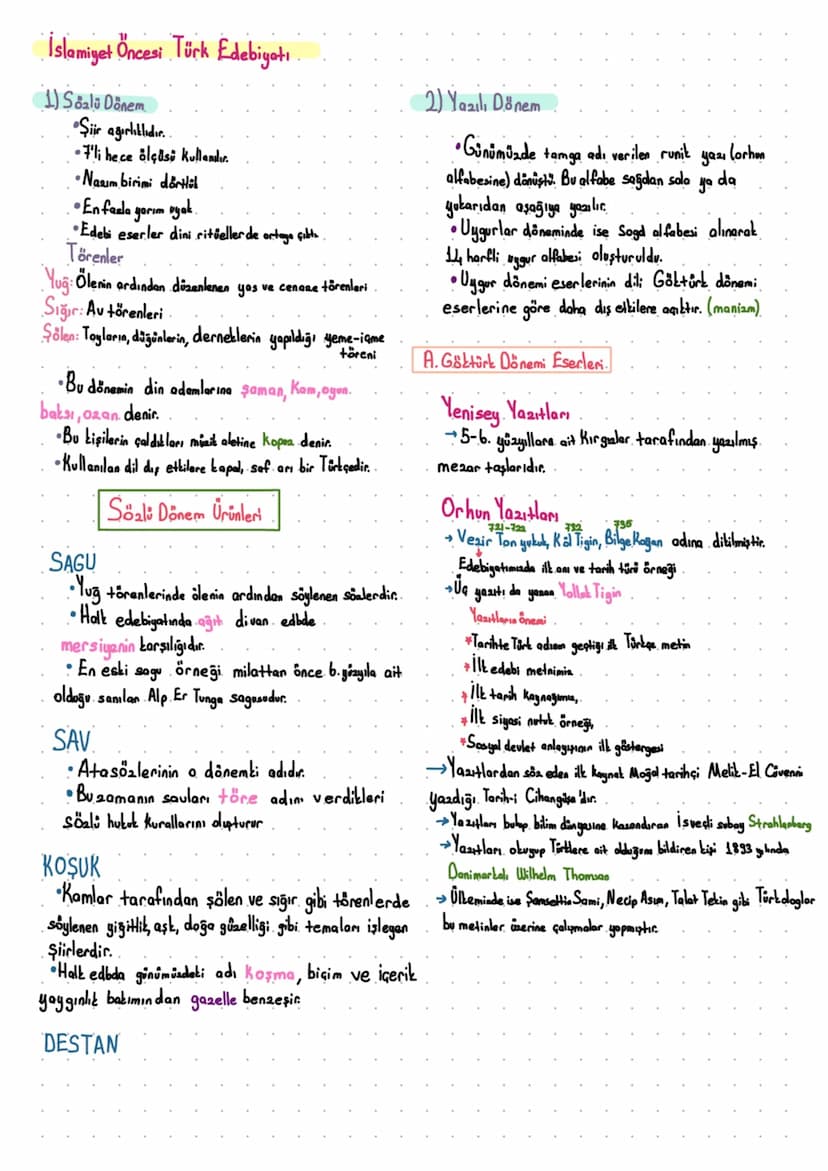 İslamiyet Öncesi Türk Edebiyatı
1) Sözlü Dönem
•Şiir ağırlıklıdır.
•7'li hece ölçüsü kullanılır.
•Nazım birimi dörtlük
•En fazla yarım uyak
•Edebi eserler dini ritüellerde ortaya çıktı.
Törenler
Yuğ: Ölenin ardından düzenlenen yas ve cenaze törenleri
Sığır: Av törenleri
Şölen: Toyların, düğünlerin, derneklerin yapıldığı yeme-içme
töreni
•Bu dönemin din adamlarına şaman, kam, oyun.
baksı, ozan denir.
•Bu kişilerin çaldıkları müzik aletine kopuz denir.
•Kullanılan dil dış etkilere kapalı, saf arı bir Türkçedir.
Sözlü Dönem Ürünleri
SAGU
•Yuğ törenlerinde ölenin ardından söylenen sözlerdir.
•Halk edebiyatında ağıt divan edbde
mersiyenin karşılığıdır.
•En eski sagu örneği milattan önce 6.yüzyıla ait
olduğu sanılan Alp Er Tunga sagusudur.
SAV
•Atasözlerinin o dönemki adıdır.
•Bu zamanın savları töre adını verdikleri
sözlü hukuk kurallarını oluşturur
KOŞUK
•Kamlar tarafından şölen ve sığır gibi törenlerde
söylenen yiğitlik, aşk, doğa güzelliği gibi temaları işleyen
şiirlerdir.
•Halk edbda günümüzdeki adı koşma, biçim ve içerik
yaygınlık bakımından gazelle benzeşir.
DESTAN
2) Yazılı Dönem
•Günümüzde tamga adı verilen runik yazı (orhun
alfabesine) dönüştü. Bu alfabe sağdan sola ya da
yukarıdan aşağıya yazılır.
•Uygurlar döneminde ise Sogd alfabesi alınarak
14 harfli uygur alfabesi oluşturuldu.
•Uygur dönemi eserlerinin dili Göktürk dönemi
eserlerine göre daha dış etkilere açıktır. (manizm)
A. Göktürk Dönemi Eserleri
Yenisey Yazıtları
→5-6. yüzyıllara ait Kırgızlar tarafından yazılmış
mezar taşlarıdır.
Orhun Yazıtları
721-722 732 735
→Vezir Tonyukuk, Kül Tigin, Bilge Kağan adına dikilmiştir.
Edebiyatımızda ilk anı ve tarih türü örneği
→Üç yazıtı da yazan Yolluk Tigin
Yazıtların önemi
*Tarihte Türk adının geçtiği ilk Türkçe metin
*İlk edebi metnimiz
*İlk tarih kaynağımız,
*İlk siyasi nutuk örneği,
*Sosyal devlet anlayışının ilk göstergesi
→Yazıtlardan söz eden ilk kaynak Moğol tarihçi Melik-El Cüveyni
yazdığı Tarih-i Cihangüşa'dır.
→Yazıtları bulup bilim dünyasına kazandıran İsveçli subay Strahlenberg
→Yazıtları okuyup Türklere ait olduğunu bildiren kişi 1893 yılında
Danimarkalı Wilhelm Thomsan
→Ülkemizde ise Şemsettin Sami, Necip Asım, Talat Tekin gibi Türkologlar
bu metinler üzerine çalışmalar yapmıştır.